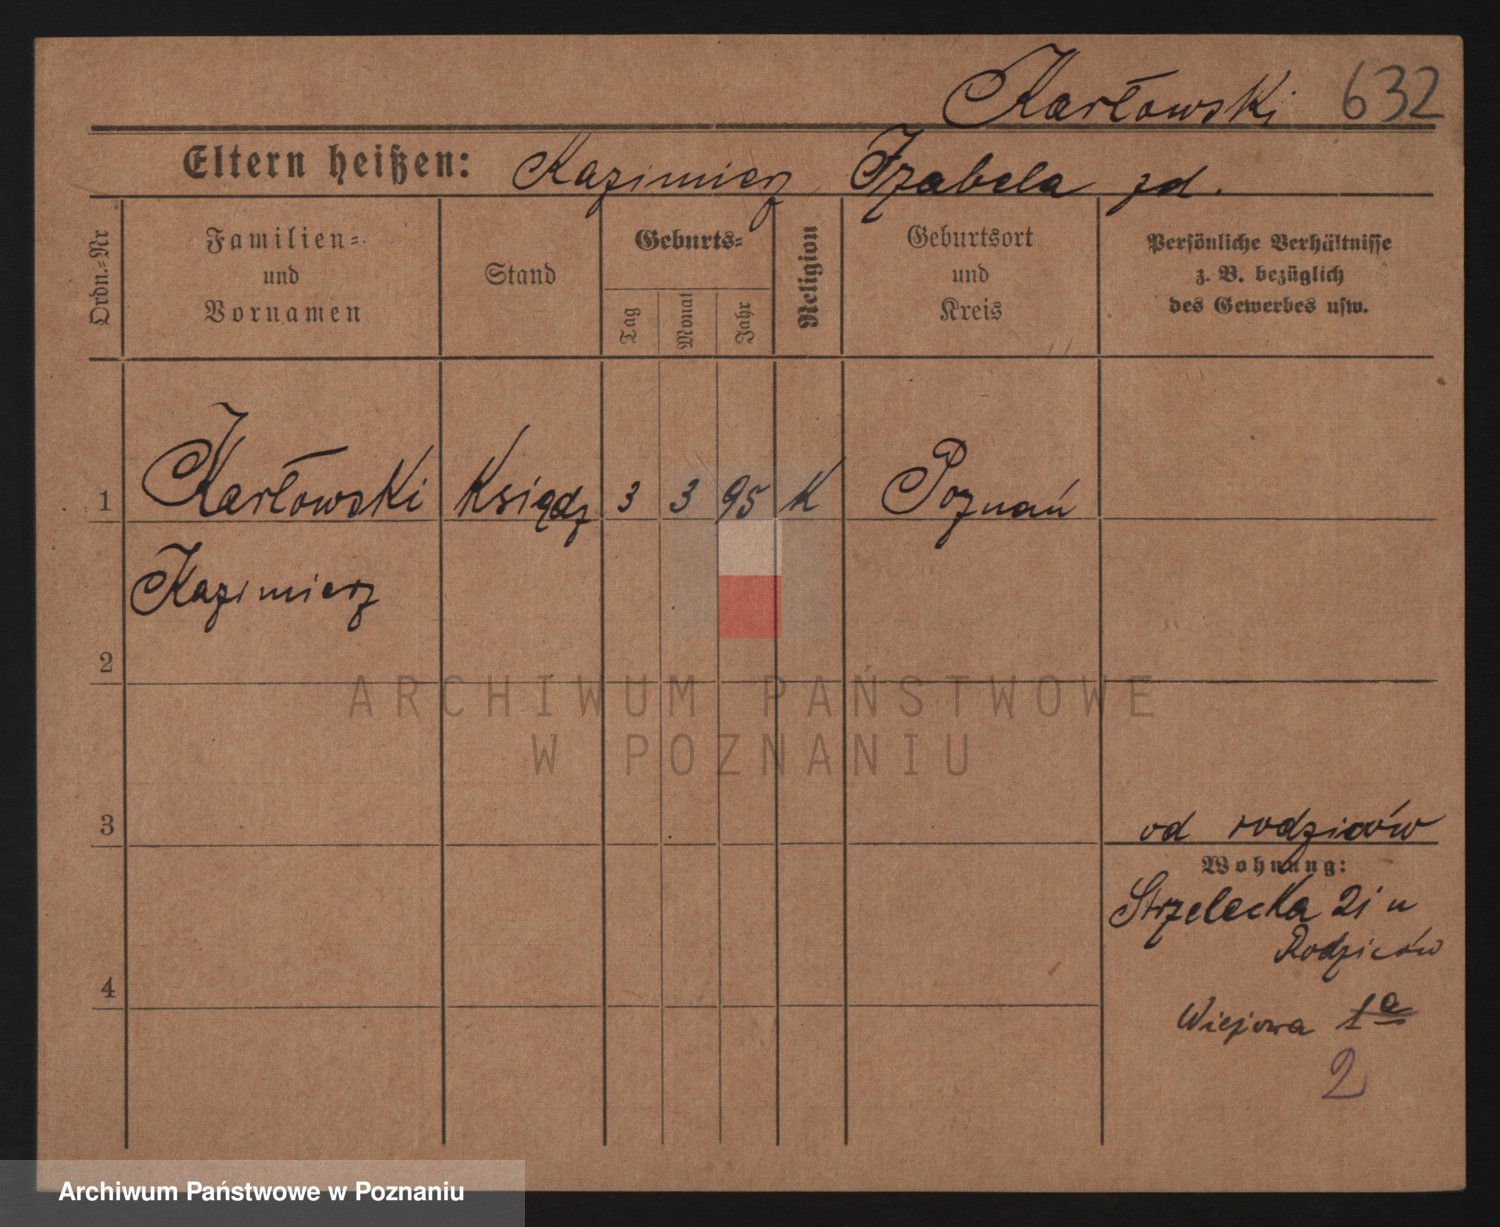 Karłowski 632
Eltern heißen: Kazimierz Izabela zd.
Ordn.=Nr
Familien=
und
Vornamen
Stand
Geburts=
Tag
Monat
Jahr
Religion
Geburtsort
und
Kreis
Persönliche Verhältnisse
z. B. bezüglich
des Gewerbes usw.
1 Karłowski Ksiądz 3 3 95 K Poznań
Kazimierz
2
ARCHIWUM PAŃSTWOWE
W POZNANIU
3
od rodziców
Wohnung:
Strzelecka 21 u
Rodziców
4
Wiejowa 1a
2
Archiwum Państwowe w Poznaniu